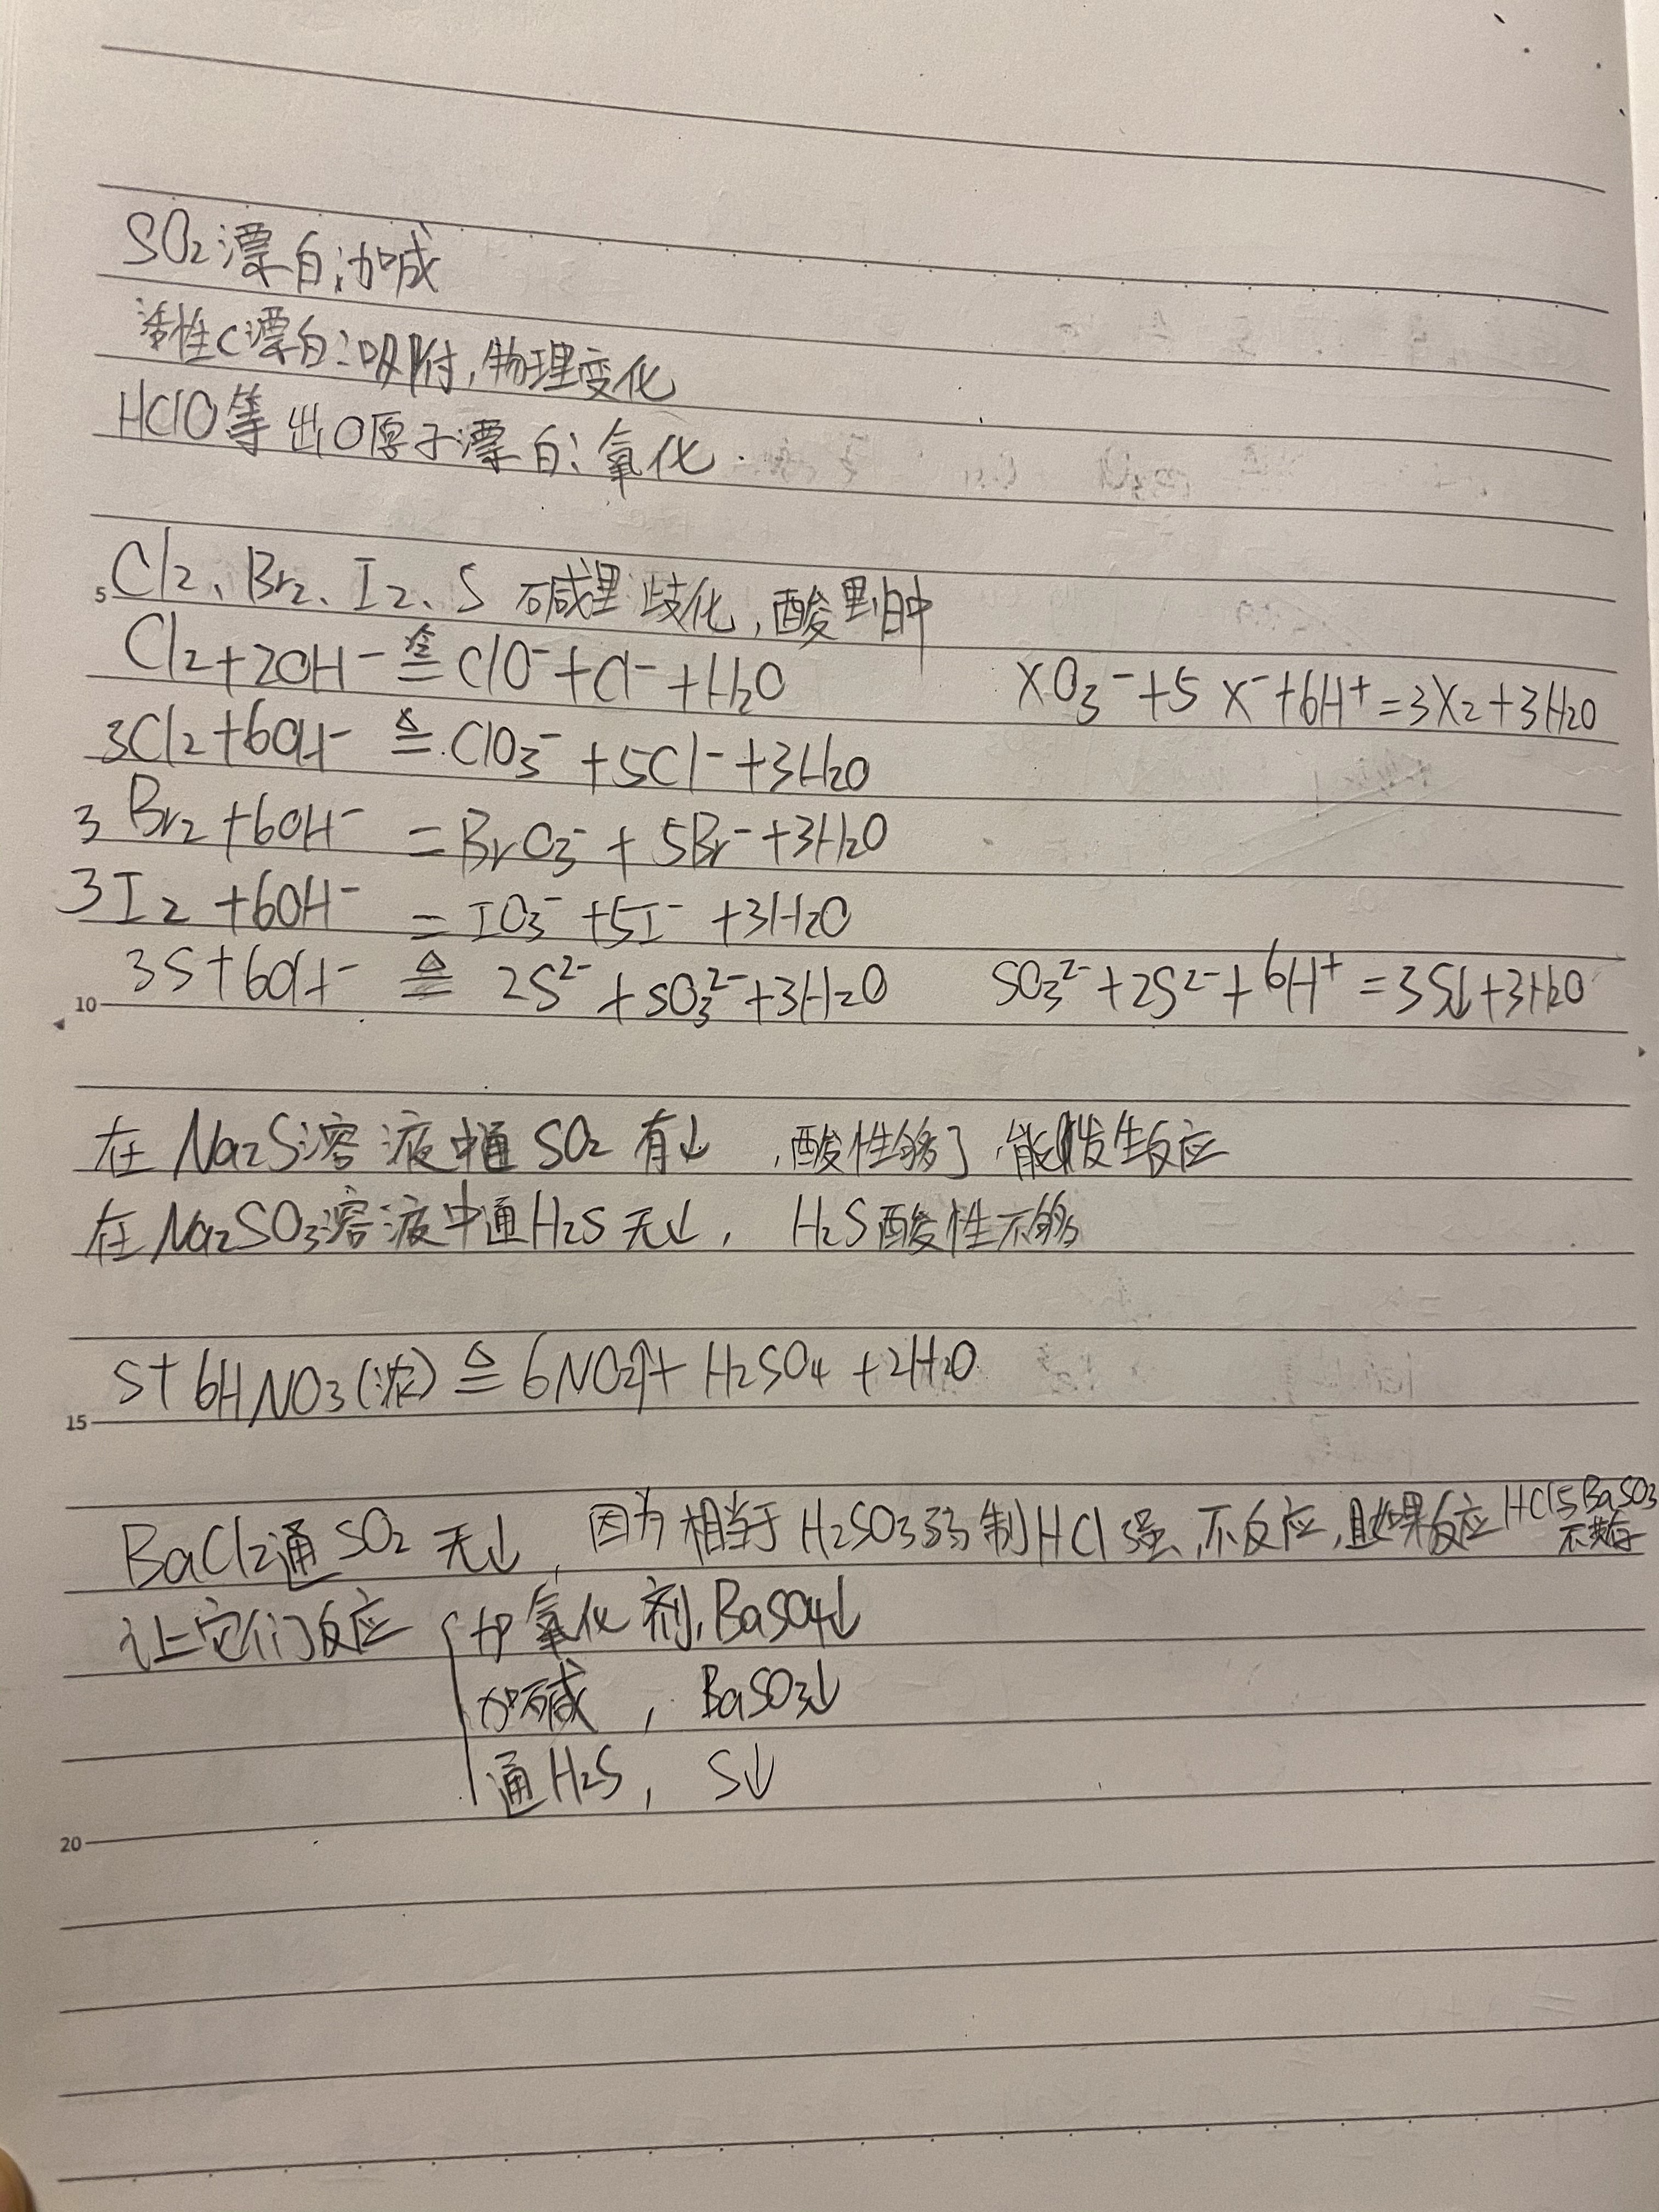 SO₂漂白:加碱
活性C漂白:吸附,物理变化
HClO等出O原子漂白:氧化.
Cl₂、Br₂、I₂、S 碱里歧化,酸里归中
5
Cl₂+2OH⁻ 冷= ClO⁻+Cl⁻+H₂O XO₃⁻+5X⁻+6H⁺=3X₂+3H₂O
3Cl₂+6OH⁻ ≜ ClO₃⁻+5Cl⁻+3H₂O
3Br₂+6OH⁻ = BrO₃⁻+5Br⁻+3H₂O
3I₂+6OH⁻ = IO₃⁻+5I⁻+3H₂O
3S+6OH⁻ ≜ 2S²⁻+SO₃²⁻+3H₂O SO₃²⁻+2S²⁻+6H⁺=3S↓+3H₂O
10
在Na₂S溶液中通SO₂有↓,酸性够了,能发生反应
在Na₂SO₃溶液中通H₂S无↓, H₂S酸性不够
S+6HNO₃(浓) ≜ 6NO₂↑+H₂SO₄+2H₂O
15
BaCl₂通SO₂无↓,因为相当于H₂SO₃弱制HCl强,不反应,且如果反应HCl与BaSO₃
不共存
让它们反应 { 加氧化剂,BaSO₄↓
加碱, BaSO₃↓
通H₂S, S↓
20